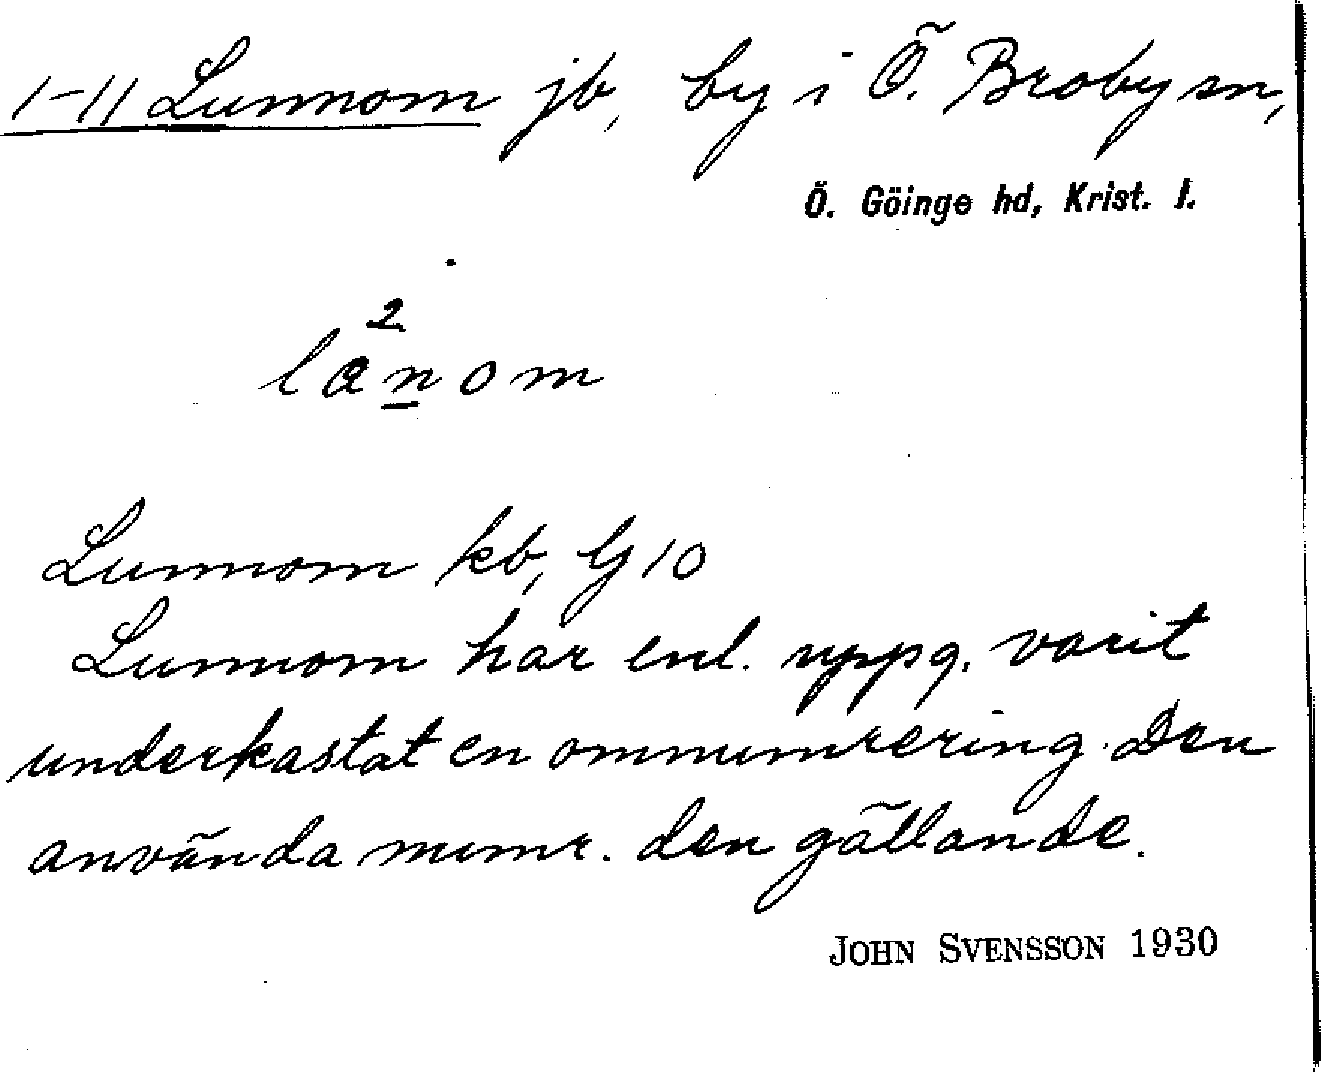 1-11 Lunnom jb, by i Ö. Broby sn,
Ö. Göinge hd, Krist. l.
2
lanom
Lunnom kb, G 10
Lunnom har enl. uppg. varit
underkastat en omnumrering. Den
använda numr. den gällande.
JOHN SVENSSON 1930